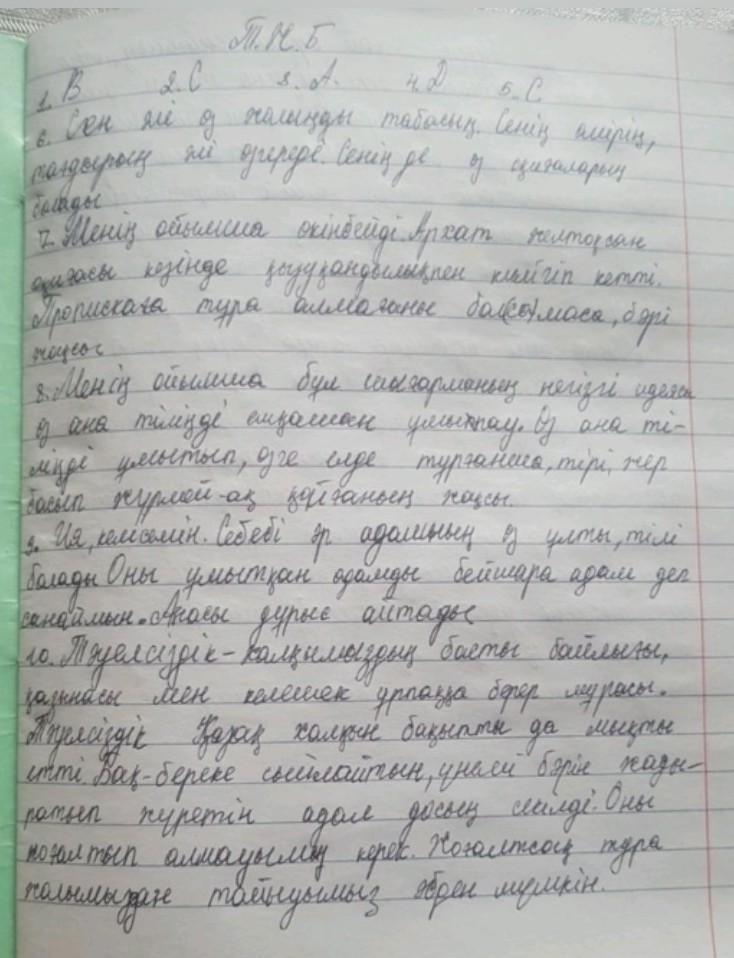 Т.Ж.Б
1. В 2. С 3. А. 4. Д 5. С
6. Сен әлі өз жолыңды табасың. Сенің өмірің,
тағдырың әлі өзгереді. Сенің де өз оқиғаларың
болады
7. Менің ойымша өкінбейді. Архат желтоқсан
оқиғасы кезінде қызуқандылықпен кетті.
Прописката тұра алмағаны болмаса, бәрі
жақсы
8. Менің ойымша бұл шығарманың негізгі идеясы
өз ана тіліңді ешқашан ұмытпау. Өз ана ті-
ліңді ұмытып, өзге елде тұрғанша, тірі жер
басып жүрмей-ақ қойғаның жақсы.
9. Ия, келісемін. Себебі әр адамның өз ұлты, тілі
болады Оны ұмытқан адамды бейшара адам деп
санаймын. Анасы дұрыс айтады
10. Тәуелсіздік - халқымыздың басты байлығы,
қазынасы мен келешек ұрпаққа берер мұрасы.
Тәуелсіздік Қазақ халқын бақытты да мықты
етті Бақ-береке сыйлайтын, үнемі бәрін жады-
ратып жүретін адал досың секілді. Оны
жоғалтып алмауымыз керек. Жоғалтсақ тура
жолымыздан тайыуымыз әбден мүмкін.